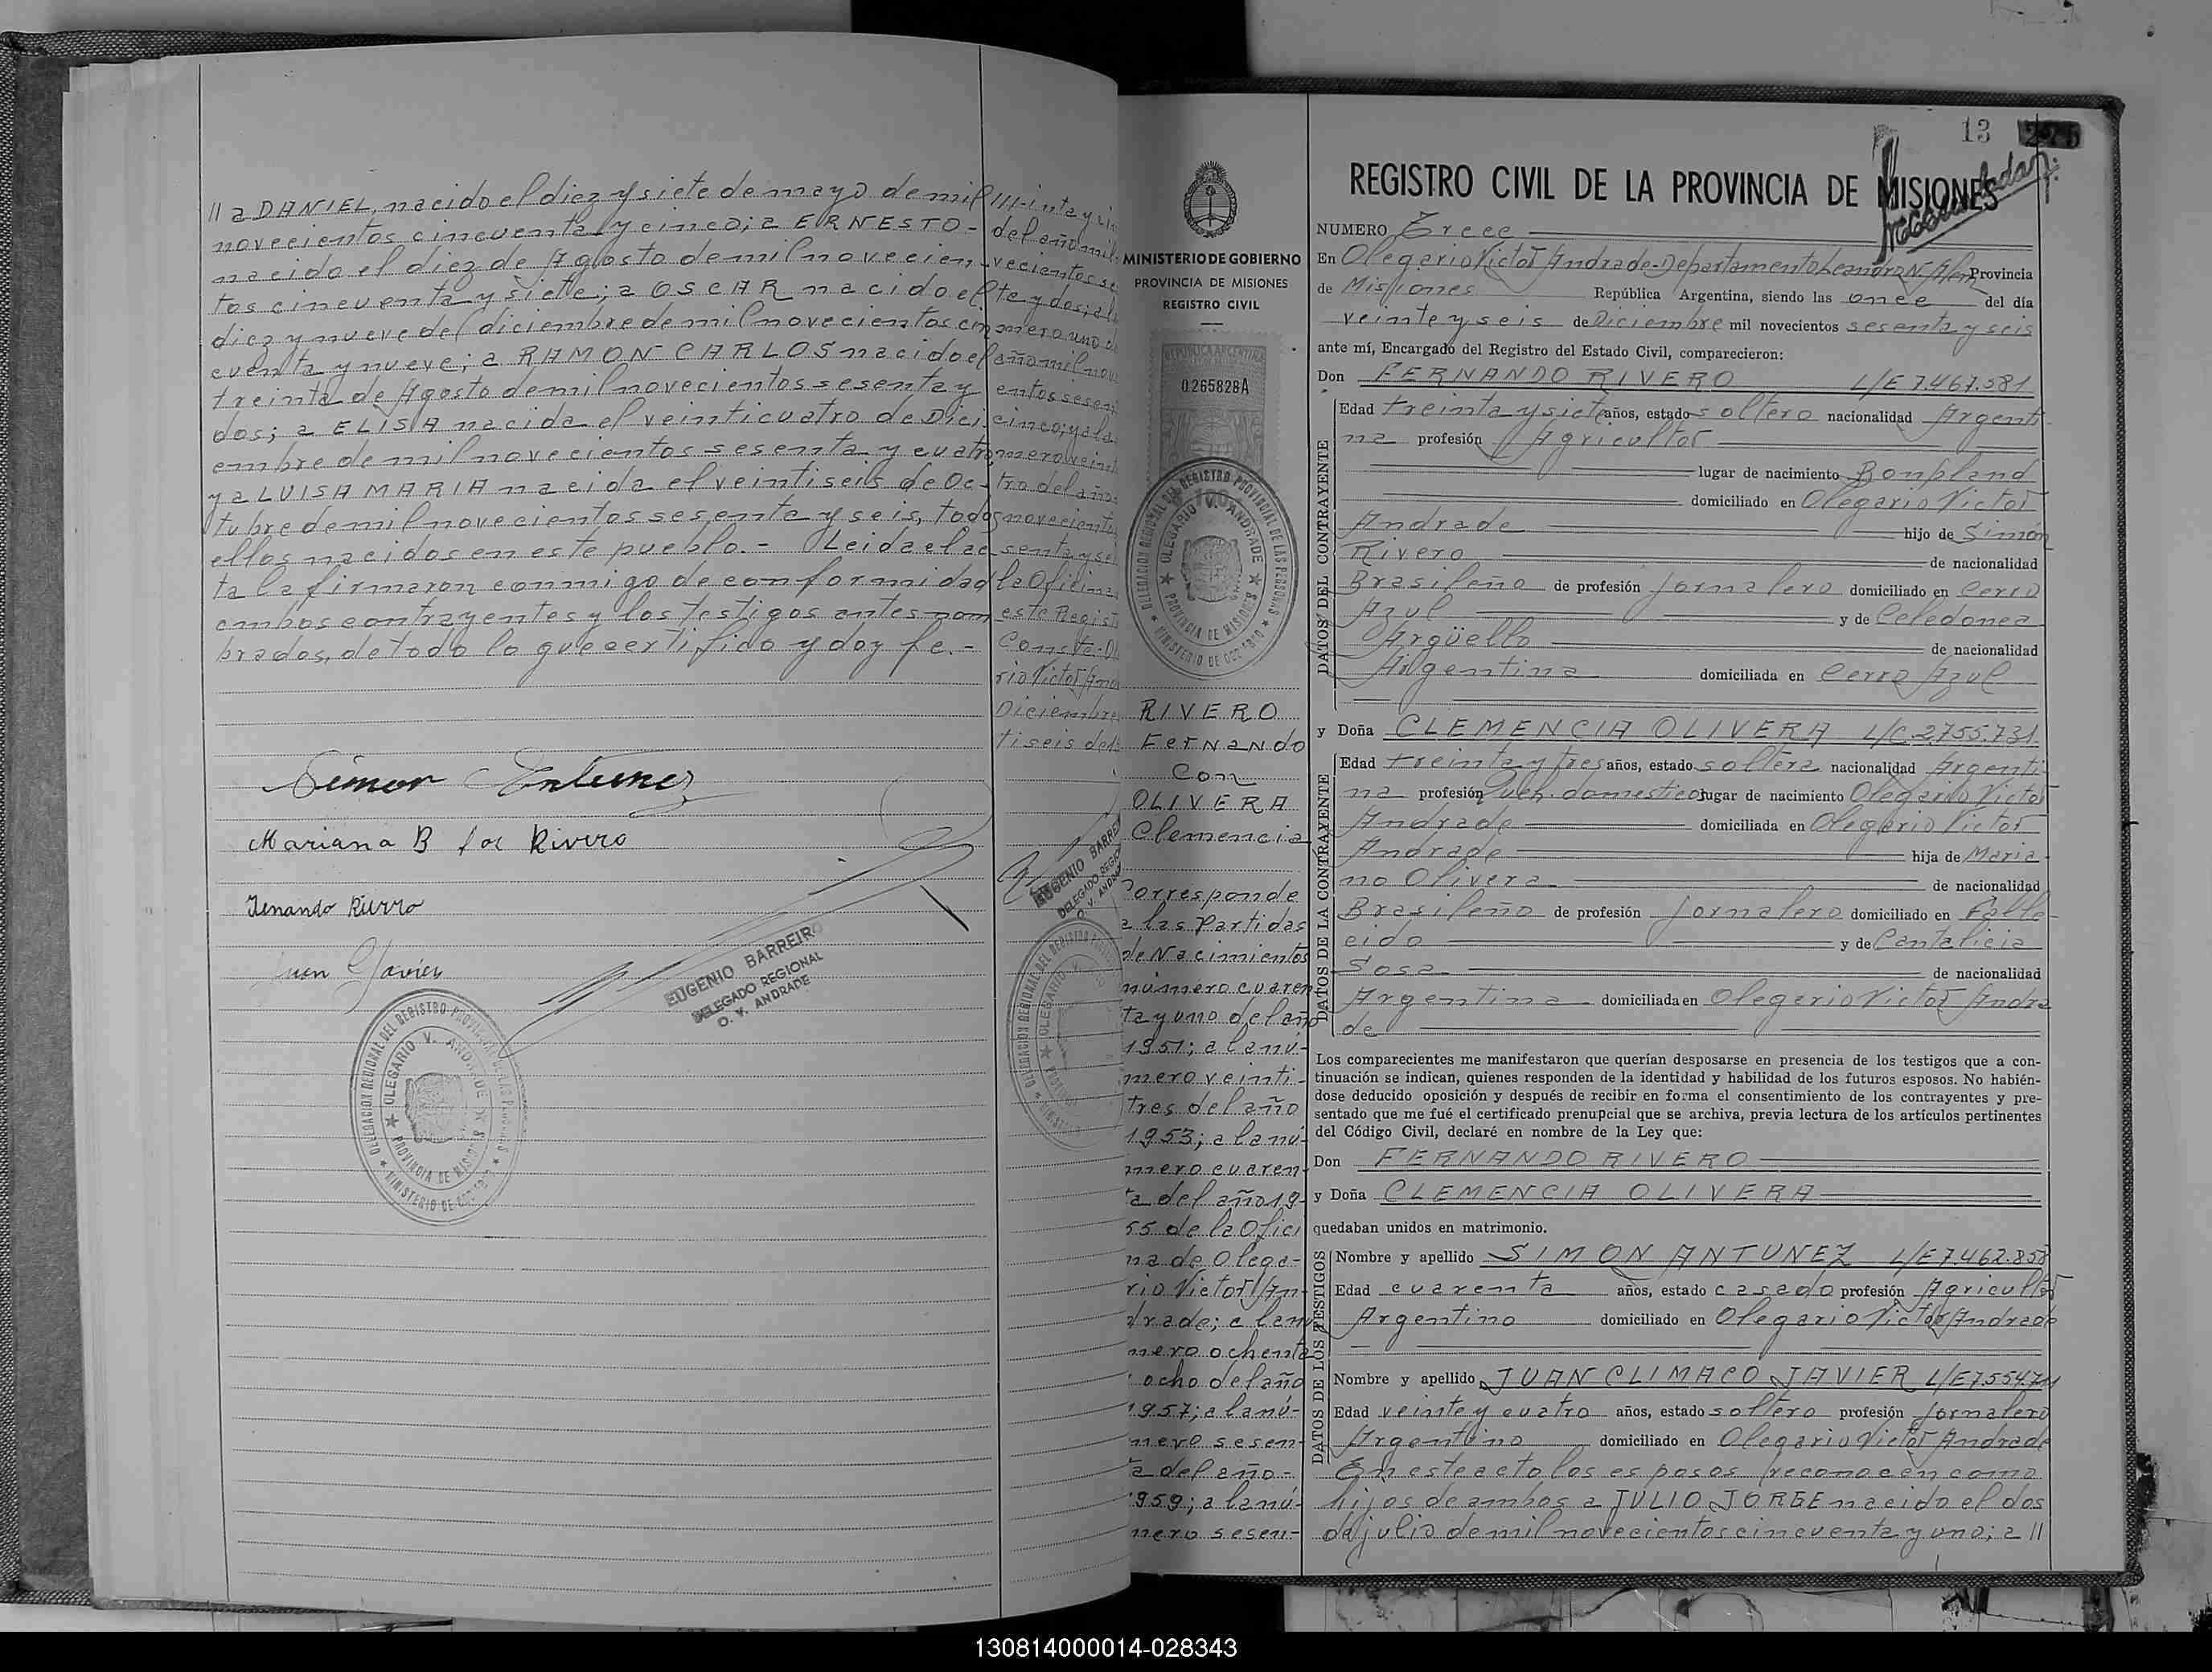 || a DANIEL, nacido el diez y siete de mayo de mil
novecientos cincuenta y cinco; a ERNESTO-
nacido el diez de Agosto de mil novecien-
tos cincuenta y siete; a OSCAR nacido el
diez y nueve de diciembre de mil novecientos cin
cuenta y nueve; a RAMON CARLOS nacido el
treinta de Agosto de mil novecientos sesenta y
dos; a ELISA nacida el veinticuatro de Dici
embre de mil novecientos sesenta y cuatro
y a LUISA MARIA nacida el veintiseis de Oc-
tubre de mil novecientos sesenta y seis, todos
ellos nacidos en este pueblo.- Leida el ac
ta la firmaron conmigo de conformidad
ambos contrayentes y los testigos antes nom
brados, de todo lo que certifico y doy fe.-
Simon Antunez
Mariana B de Rivero
Fernando Rivero
Juan Javier
EUGENIO BARREIRO
DELEGADO REGIONAL
O. V. ANDRADE
DELEGACION REGIONAL DEL REGISTRO PROVINCIAL DE LAS PERSONAS
OLEGARIO V. ANDRADE
PROVINCIA DE MISIONES
MINISTERIO DE GOB
del año mil
vecientos se
te y dos; a la
mero uno d
año mil nov
entos sesen
cinco; y a la
mero veint
tro del año
novecientos
senta y se
la Oficina
este Regist
Conste.- O
rio Victor And
Diciembre
tiseis del
EUGENIO BARREI
DELEGADO REGIO
O. V. ANDRA
MINISTERIO DE GOBIERNO
PROVINCIA DE MISIONES
REGISTRO CIVIL
REPUBLICA ARGENTINA
0265828A
DELEGACION REGIONAL DEL REGISTRO PROVINCIAL DE LAS PERSONAS
OLEGARIO V. ANDRADE
PROVINCIA DE MISIONES
MINISTERIO DE GOB
RIVERO
Fernando
Con
OLIVERA
Clemencia
Corresponde
a las Partidas
de Nacimientos
número cuaren
ta y uno del año
1951; a la nú-
mero veinti-
tres del año
1953; a la nú-
mero cuaren-
ta del año 19
55 de la Ofici
na de Olega-
rio Victor An-
drade; a la nú
mero ochenta
y ocho del año
1957; a la nú-
mero sesen-
ta del año-
1959; a la nú-
mero sesen-
13
REGISTRO CIVIL DE LA PROVINCIA DE MISIONES
NUMERO Trece
En Olegario Victor Andrade-Departamento Leandro N. Alem Provincia
de Misiones República Argentina, siendo las once del día
veinte y seis de Diciembre mil novecientos sesenta y seis
ante mí, Encargado del Registro del Estado Civil, comparecieron:
Don FERNANDO RIVERO L/E 7.467.581
DATOS DEL CONTRAYENTE
Edad treinta y siete años, estado soltero nacionalidad Argenti-
na profesión Agricultor
lugar de nacimiento Bonpland
domiciliado en Olegario Victor
Andrade hijo de Simón
Rivero de nacionalidad
Brasileño de profesión Jornalero domiciliado en Cerro
Azul y de Celedonea
Argüello de nacionalidad
Argentina domiciliada en Cerro Azul
y Doña CLEMENCIA OLIVERA L/C 2.755.731
DATOS DE LA CONTRAYENTE
Edad treinta y tres años, estado soltera nacionalidad Argenti-
na profesión Queh. domesticos lugar de nacimiento Olegario Victor
Andrade domiciliada en Olegario Victor
Andrade hija de Maria-
no Olivera de nacionalidad
Brasileño de profesión Jornalero domiciliado en Falle-
cido y de Cantalicia
Sosa de nacionalidad
Argentina domiciliada en Olegario Victor Andra
de
Los comparecientes me manifestaron que querían desposarse en presencia de los testigos que a con-
tinuación se indican, quienes responden de la identidad y habilidad de los futuros esposos. No habién-
dose deducido oposición y después de recibir en forma el consentimiento de los contrayentes y pre-
sentado que me fué el certificado prenupcial que se archiva, previa lectura de los artículos pertinentes
del Código Civil, declaré en nombre de la Ley que:
Don FERNANDO RIVERO
y Doña CLEMENCIA OLIVERA
quedaban unidos en matrimonio.
DATOS DE LOS TESTIGOS
Nombre y apellido SIMON ANTUNEZ L/E 7.462.858
Edad cuarenta años, estado casado profesión Agricultor
Argentino domiciliado en Olegario Victor Andrade
Nombre y apellido JUAN CLIMACO JAVIER
Edad veinte y cuatro años, estado soltero profesión Jornalero
Argentino domiciliado en Olegario Victor Andrade
En este acto los esposos reconocen como
hijos de ambos a JULIO JORGE nacido el dos
de julio de mil novecientos cincuenta y uno; a ||
130814000014-028343